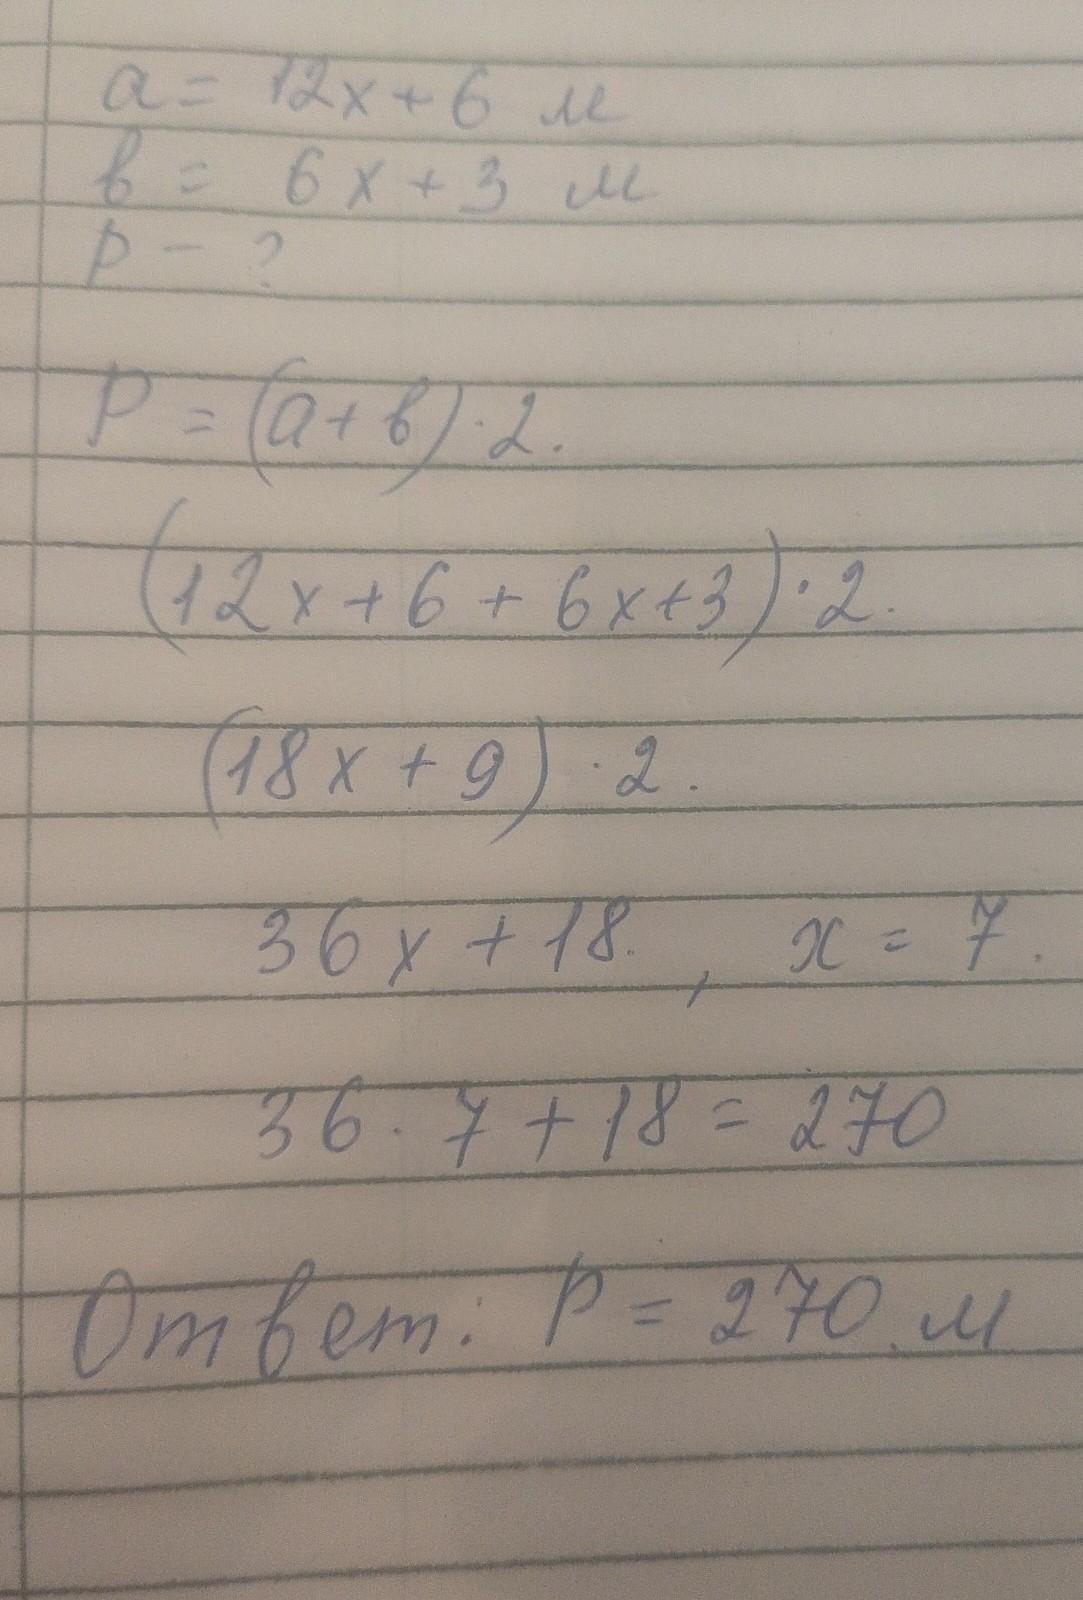 a = 12x + 6 м
в = 6x + 3 м
p - ?
P = (a + в) · 2.
(12x + 6 + 6x + 3) · 2.
(18x + 9) · 2.
36x + 18. , x = 7.
36 · 7 + 18 = 270
Ответ: P = 270 м